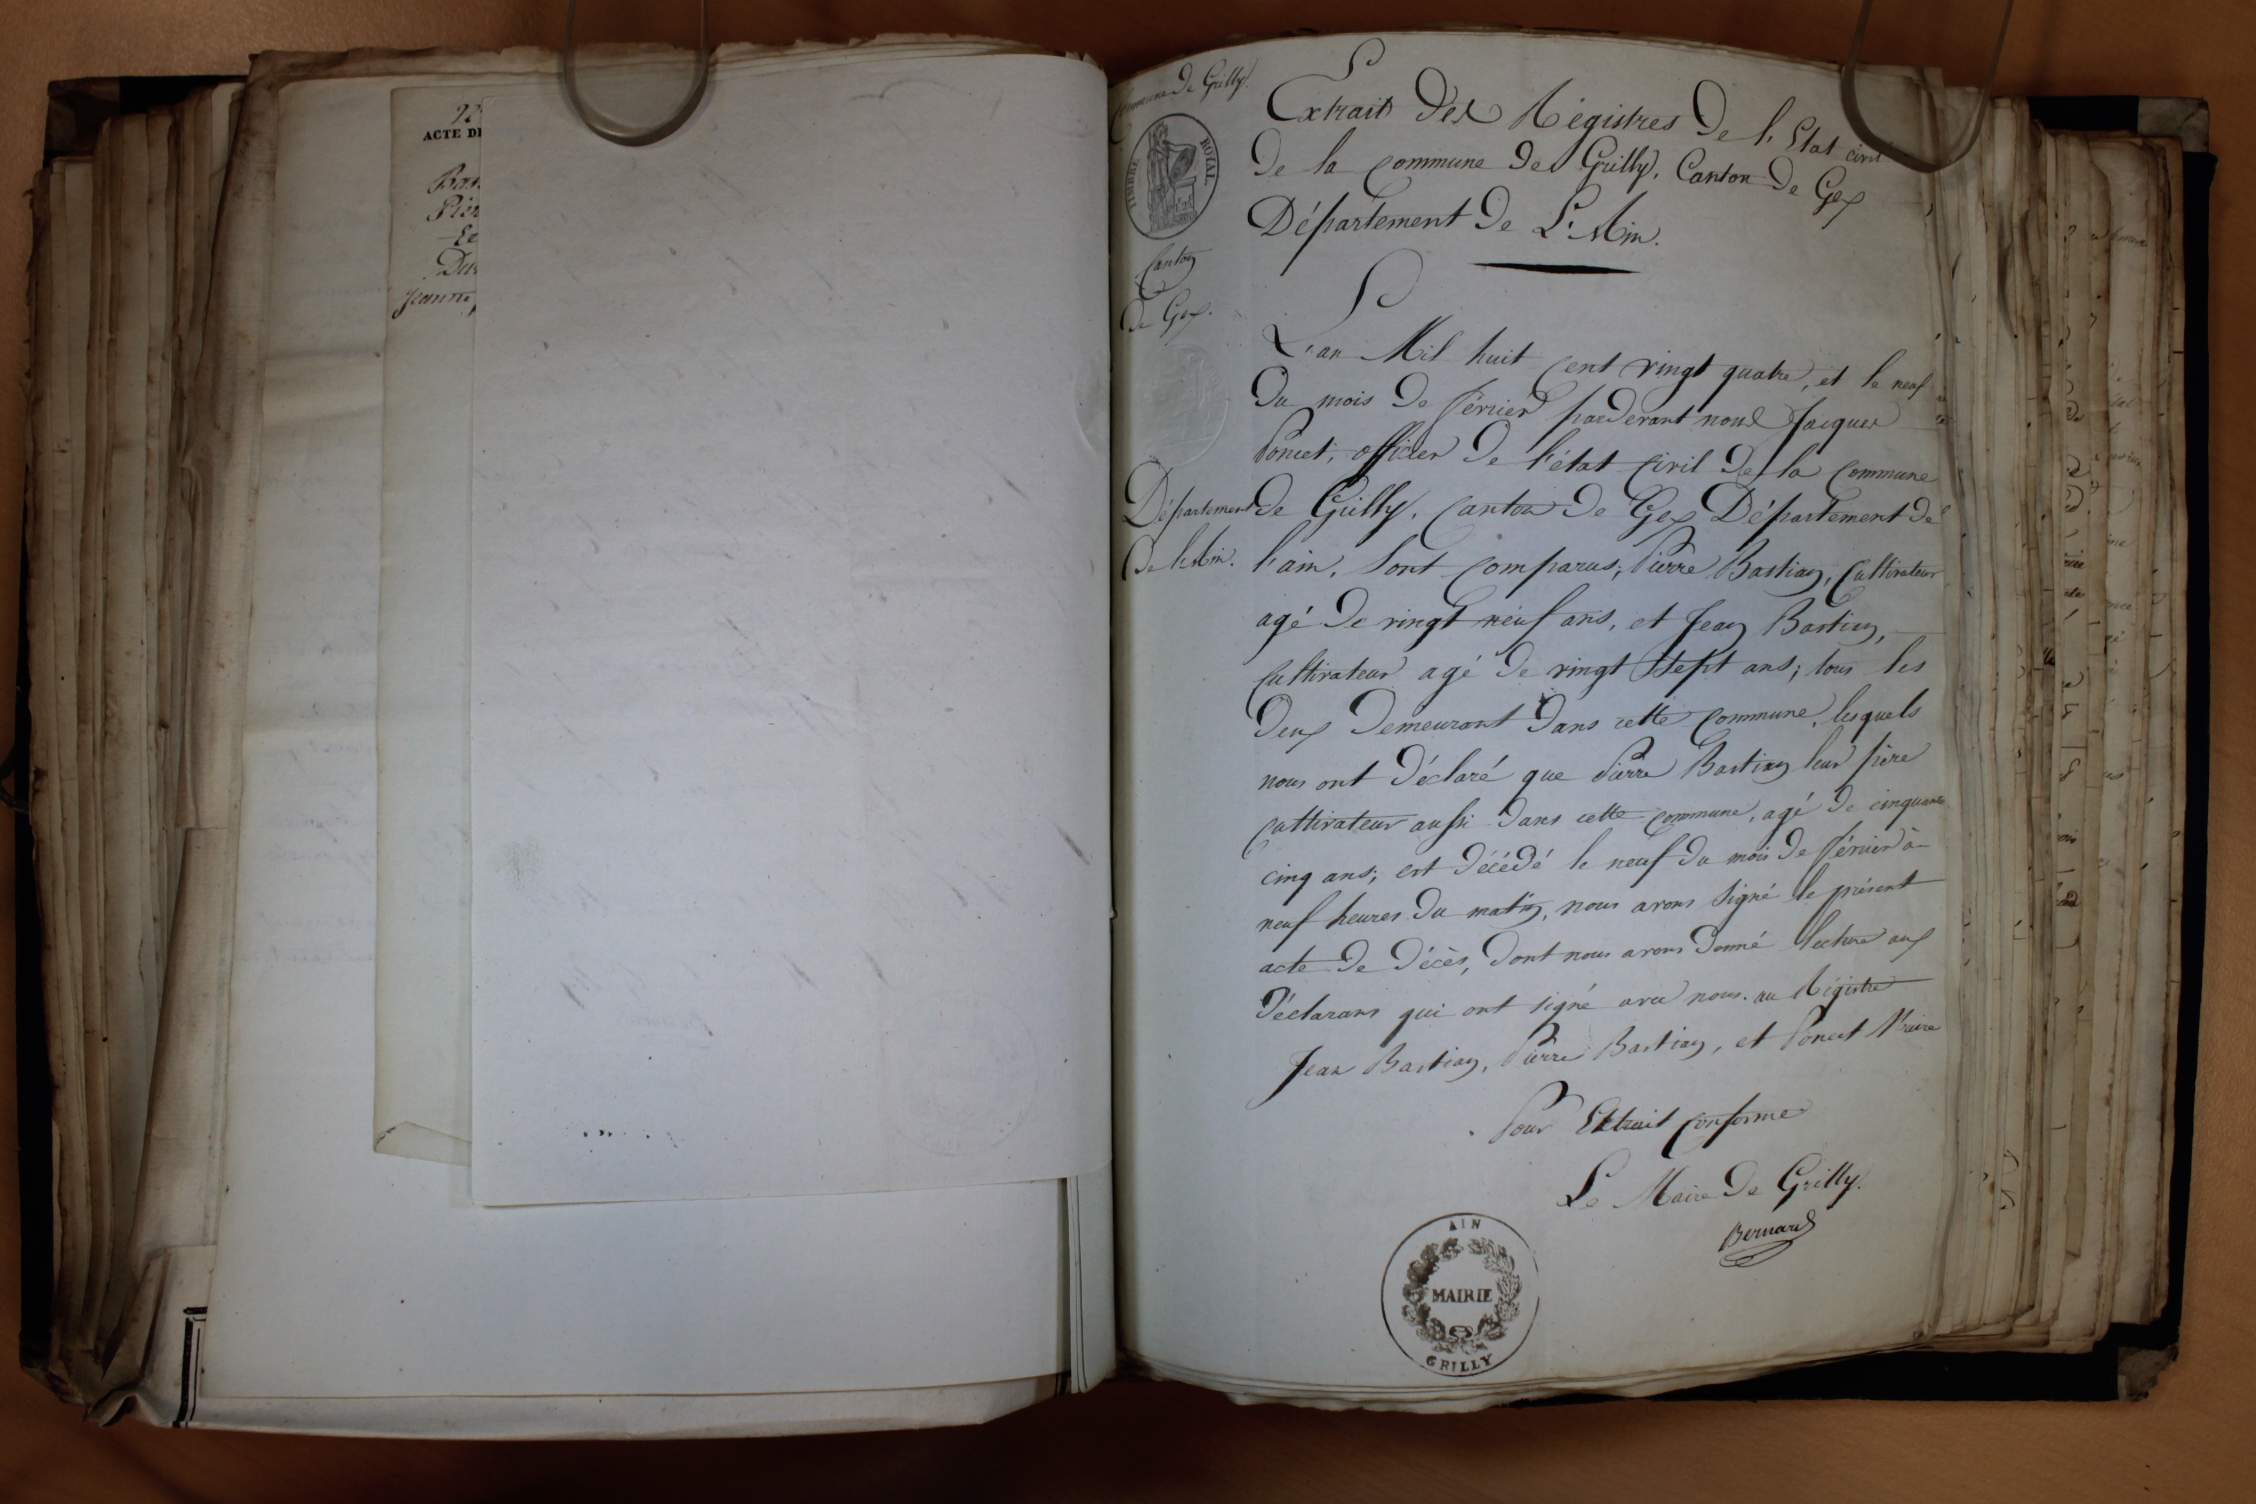 92
ACTE DE
Bas
Pier
Ee
Du
Jeanne,
Commune de Grilly.
TIMBRE ROYAL
Canton
de Gex.
Département
De l'Ain.
Extrait des Régistres De l'Etat civil
De la commune de Grilly, Canton de Gex
Département De L'Ain.
L'an Mil huit cent vingt quatre, et le neuf
Du mois De février pardevant nous Jacques
Poncet, officier De l'état civil De la Commune
de Grilly, Canton de Gex Département de
l'ain, Sont comparus; Pierre Bastian, Cultivateur
agé De vingt neuf ans, et Jean Bastian,
Cultivateur agé de vingt Sept ans; tous les
Deux Demeurant Dans cette commune, lesquels
nous ont Déclaré que Pierre Bastian leur père
Cultivateur aussi Dans cette commune, agé de cinquante
cinq ans; est Décédé le neuf du mois De février à
neuf heures Du matin, nous avons Signé le présent
acte De Décès, Dont nous avons Donné lecture aux
Déclarans qui ont signé avec nous. au Régistre
Jean Bastian, Pierre Bastian, et Poncet Maire
Pour Extrait conforme
Le Maire De Grilly.
Bernard
AIN
MAIRIE
GRILLY